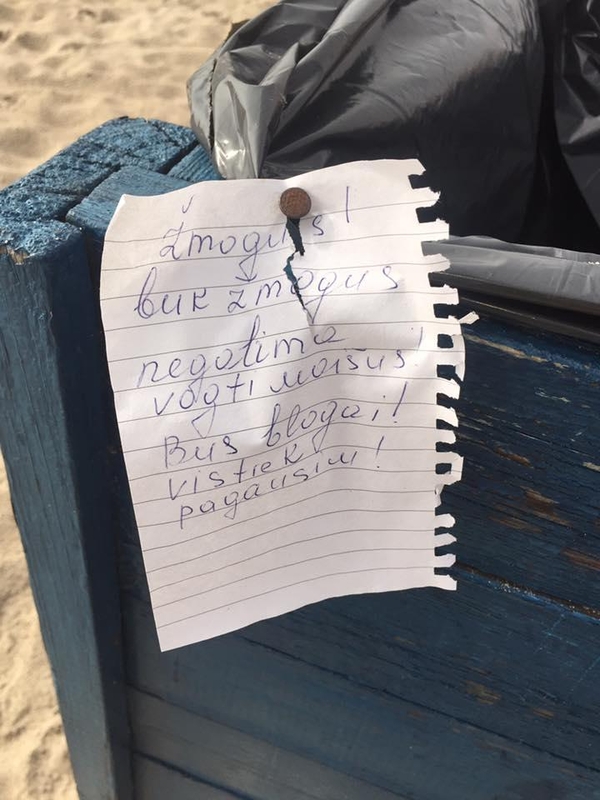 Žmogus!
buk žmogus
negalima
vogti maišus!
Bus blogai!
vistiek
pagausim!